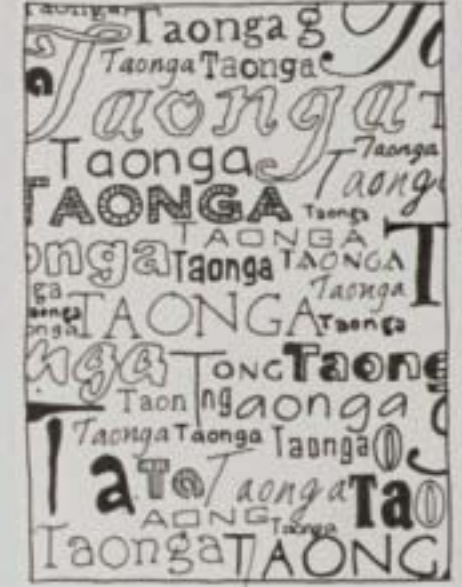 Taongar
Taonga g
Taonga Taonga
Taonga T
Taonga Taonga
Taonga
TAONGA Taonga
TAONGA T
onga Taonga TAONGA
ga Taonga
onga TAONGA Taonga
nga TONG Taong
Taon ng aonga g
Taonga Taonga Taonga O
Ta Ta Taonga Ta O
AONG Taonga
Taonga TAONG